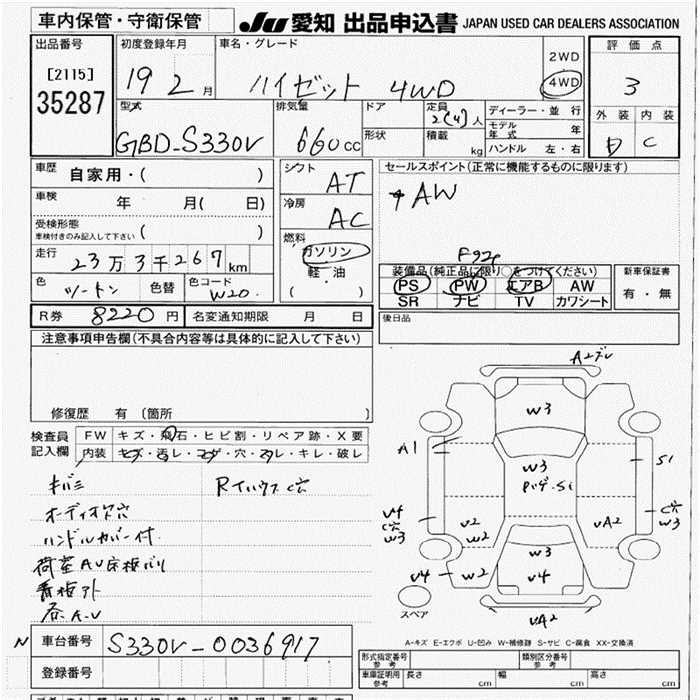 車内保管・守衛保管
JU 愛知 出品申込書 JAPAN USED CAR DEALERS ASSOCIATION
出品番号
[2115]
35287
初度登録年月
19 2 月
車名・グレード
ハイゼット 4WD
2WD
4WD
評価点
3
外装 内装
D C
型式
GBD-S330V
排気量
660 cc
ドア
形状
定員
2(4)人
積載
kg
ディーラー・並行
モデル年式 年
ハンドル 左・右
車歴 自家用・( )
車検 年 月( 日)
受検形態
車検付きのみ記入して下さい ( )
走行 23万3千267km
色 ツートン 色替 色コード W20
シフト AT
冷房 AC
燃料
ガソリン
軽・油
( )
セールスポイント(正常に機能するものに限ります)
AW
装備品(純正品に限り○をつけてください)
PS PW エアB AW
SR ナビ TV カワシート
新車保証書
有・無
R券 8220円 名変通知期限 月 日
後日品
注意事項申告欄(不具合内容等は具体的に記入して下さい)
修復歴 有 (箇所 )
検査員記入欄
FW キズ・飛石・ヒビ割・リペア跡・X要
内装 キズ・汚レ・コゲ・穴・スレ・キレ・破レ
キバミ
オーディオ穴
ハンドルカバー付
R C穴
A2
W3
A1
S1
W3
U4
C穴
W3
U2
W2
UA2
C穴
W3
W3
U4 W2
U4
UA2
スペア
A-キズ E-エクボ U-凹み W-補修跡 S-サビ C-腐食 XX-交換済
N
車台番号 S330V-0036917
登録番号
形式指定番号 参考
類別区分番号 参考
車庫証明用 参考 長さ cm 幅 cm 高さ cm